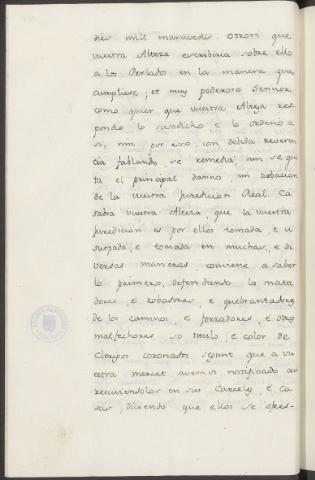 dies mill maravedis. Otrosi que
vuestra Alteza escribiria sobre ello
a los Perlados en la manera que
cumpliese, et muy poderoso Sennor
como quier que vuestra Alteza res-
pondio lo susodicho e lo ordenó a
si, nin por eso, con debida reveren
cia fablando, se remedia, nin se qui
ta el principal danno, nin robacion
de la vuestra juredicion Real. Ca
sabra vuestra Alteza, que la vuestra
juredicion es por ellos tomada, e u
surpada, e tomada en muchas, e di
versas maneras, conviene a saber
lo primero, defendiendo los mata
dores, e robadores, e quebrantadores
de los caminos, e forzadores, e otros
malfechores so titulo, e color de
Clerigos coronados segunt que a vu
estra merced avemos notificado an
rescibiendolos en sus Carceles, e Ca
sas, diciendo que ellos se ofres-